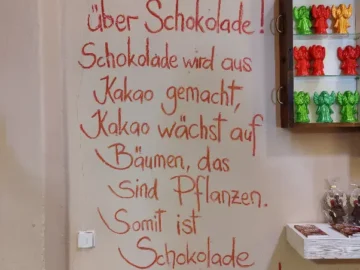 über Schokolade!
Schokolade wird aus
Kakao gemacht,
Kakao wächst auf
Bäumen, das
sind Pflanzen.
Somit ist
Schokolade